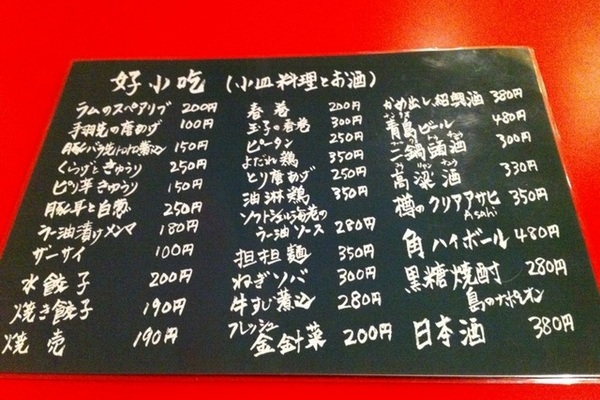 好小吃 (小皿料理とお酒)
ラムのスペアリブ 200円
手羽先の唐あげ 100円
豚バラ 煮込 150円
くらげときゅうり 250円
ピリ辛きゅうり 150円
豚耳と白葱 250円
ラー油漬けメンマ 180円
ザーサイ 100円
水餃子 200円
焼き餃子 190円
焼売 190円
春巻 200円
玉子の春巻 300円
ピータン 250円
よだれ鶏 350円
とり唐あげ 250円
油淋鶏 350円
ソフトシェル海老の
ラー油ソース 280円
担担麺 350円
ねぎソバ 300円
牛すじ煮込 280円
フレッシュ
金針菜 200円
かめ出し紹興酒 380円
青島ビール 480円
二鍋頭酒 300円
高粱酒 330円
樽のクリアアサヒ 350円
Asahi
角ハイボール 480円
黒糖焼酎 280円
島のナポレオン
日本酒 380円